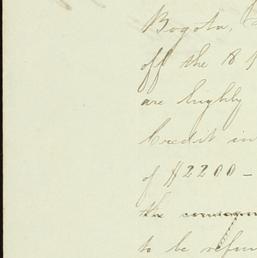 Bogota,
off the 18
are highly
Credit in
of $2200-
the
to be refun